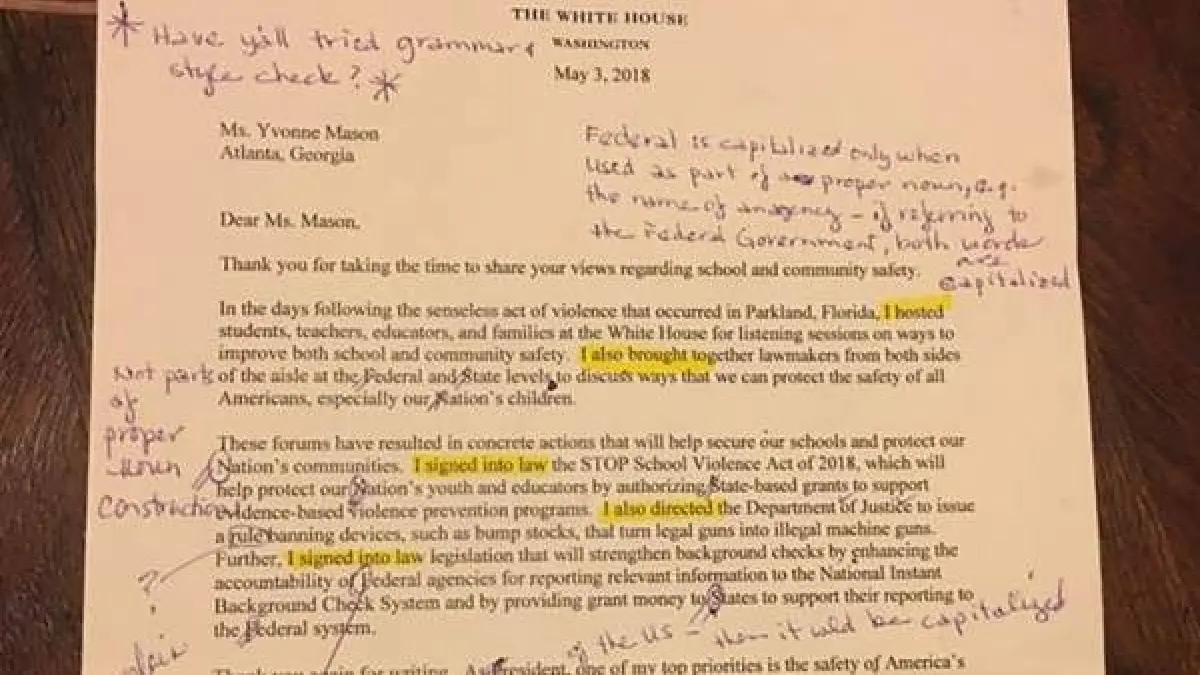 THE WHITE HOUSE
WASHINGTON
May 3, 2018
* Have y'all tried grammar &
style check? *
Ms. Yvonne Mason
Atlanta, Georgia
Federal is capitalized only when
used as part of proper noun, e.g.
the name of an agency – if referring to
the Federal Government, both words
are
capitalized
Dear Ms. Mason,
Thank you for taking the time to share your views regarding school and community safety.
In the days following the senseless act of violence that occurred in Parkland, Florida, I hosted
students, teachers, educators, and families at the White House for listening sessions on ways to
improve both school and community safety. I also brought together lawmakers from both sides
of the aisle at the Federal and State levels to discuss ways that we can protect the safety of all
Americans, especially our Nation's children.
Not parts
of
proper
noun
construction
These forums have resulted in concrete actions that will help secure our schools and protect our
Nation's communities. I signed into law the STOP School Violence Act of 2018, which will
help protect our Nation's youth and educators by authorizing State-based grants to support
evidence-based violence prevention programs. I also directed the Department of Justice to issue
a rule banning devices, such as bump stocks, that turn legal guns into illegal machine guns.
Further, I signed into law legislation that will strengthen background checks by enhancing the
accountability of Federal agencies for reporting relevant information to the National Instant
Background Check System and by providing grant money to States to support their reporting to
the Federal system.
?
of the US – then it would be capitalized
Thank you again for writing. As President, one of my top priorities is the safety of America's